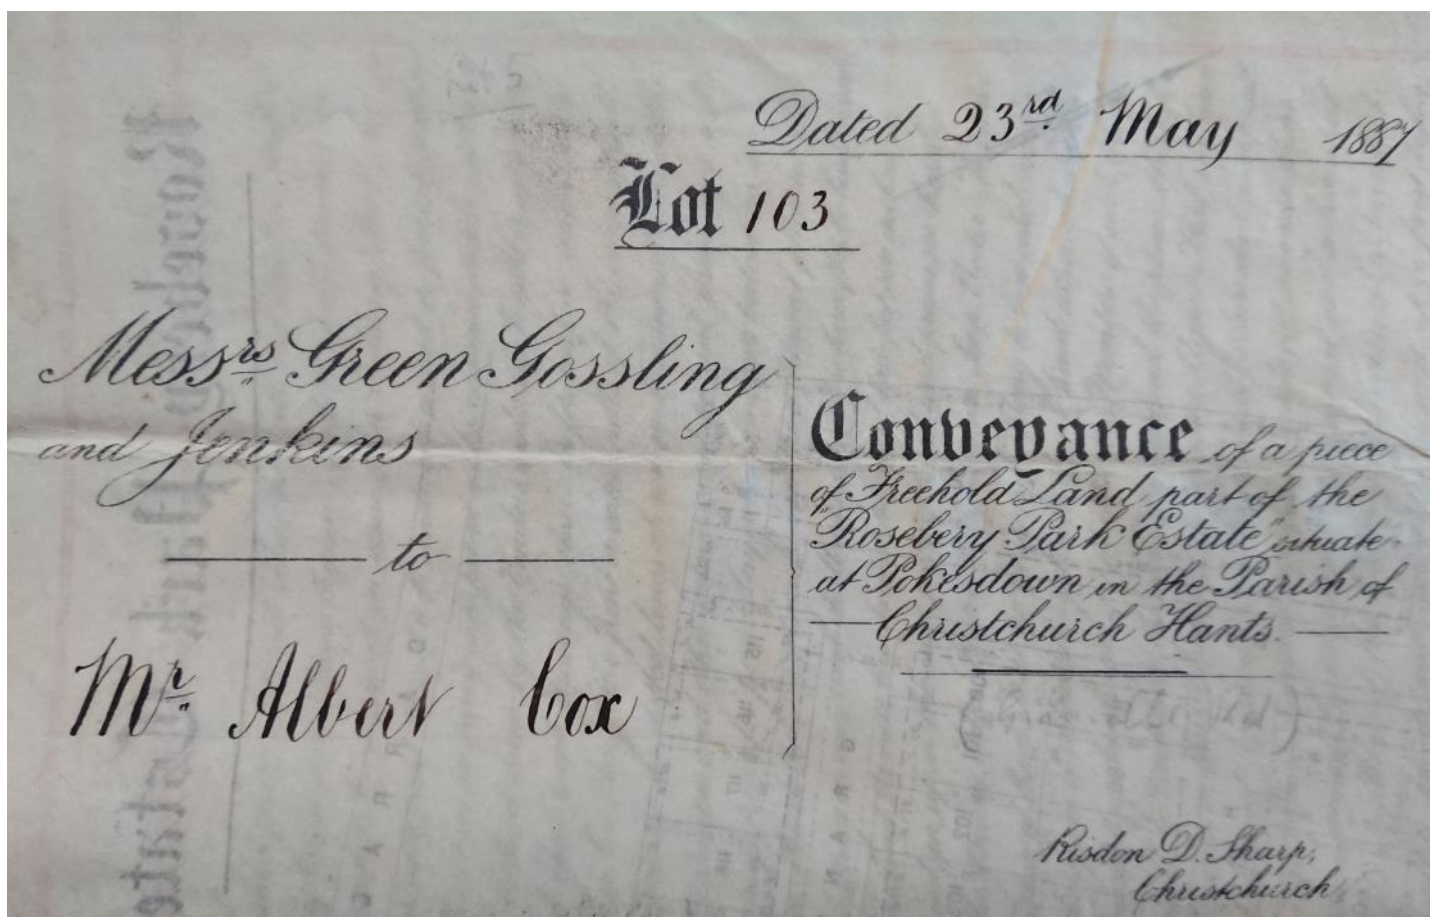 Dated 23rd May 1887
Lot 103
Messrs Green Gossling
and Jenkins
to
Mr Albert Cox
Conveyance of a piece
of Freehold Land part of the
Rosebery Park Estate" situate
at Pokesdown in the Parish of
Christchurch Hants.
Risdon D. Sharp,
Christchurch